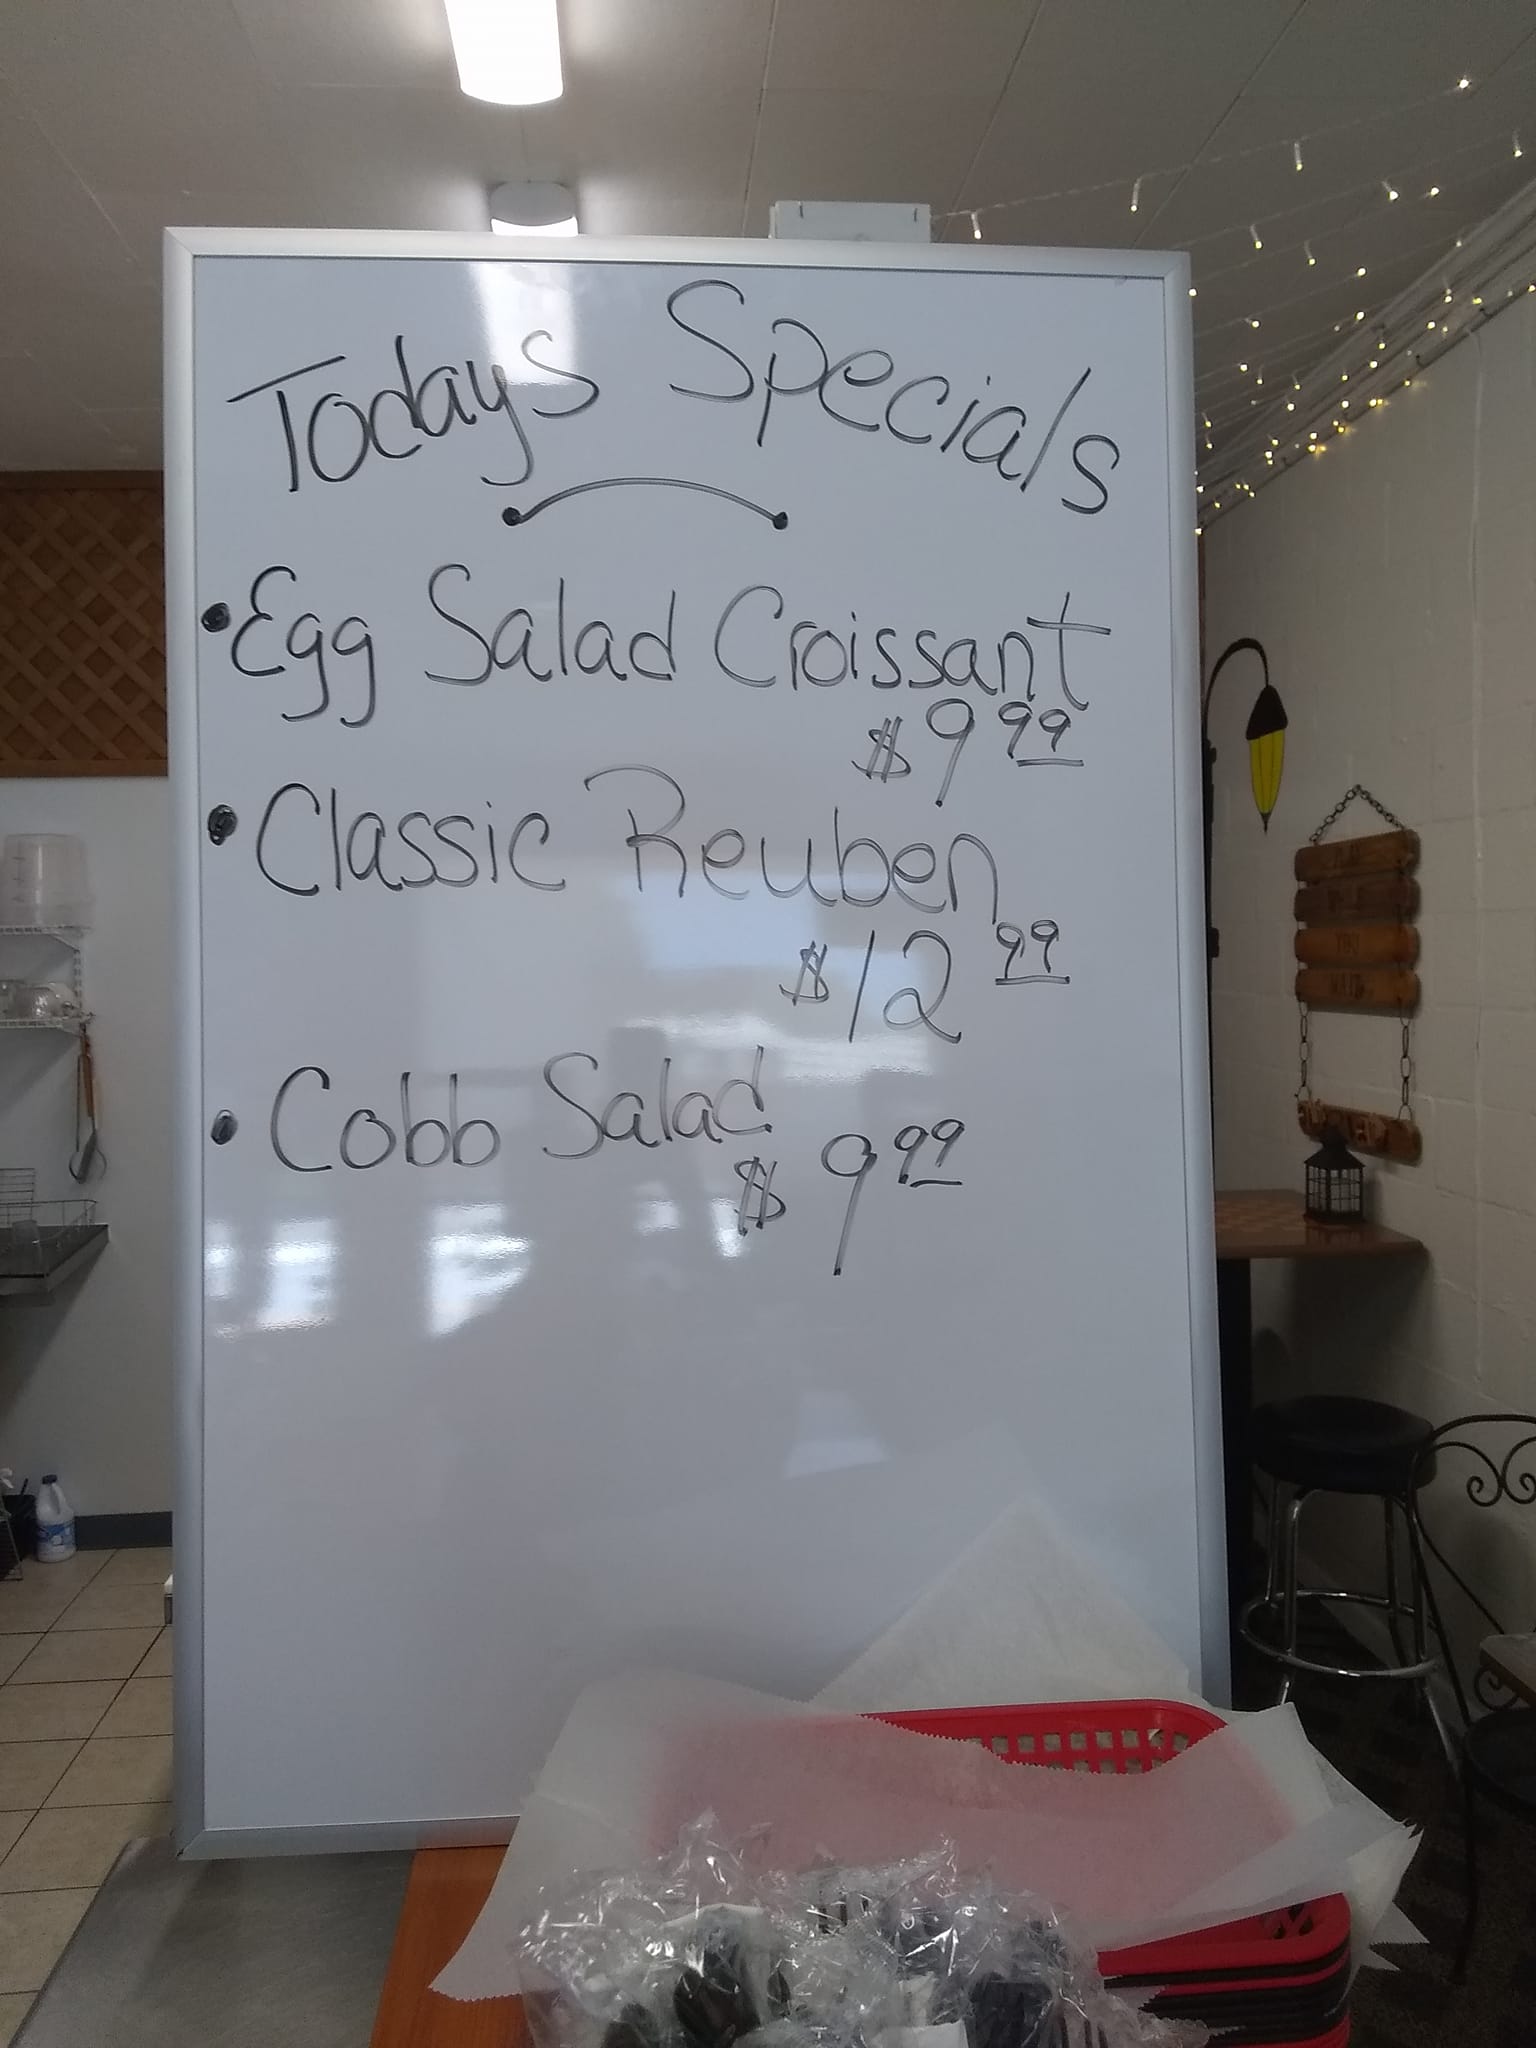 Todays Specials
• Egg Salad Croissant
$9 99
• Classic Reuben
$12 99
• Cobb Salad
$9 99